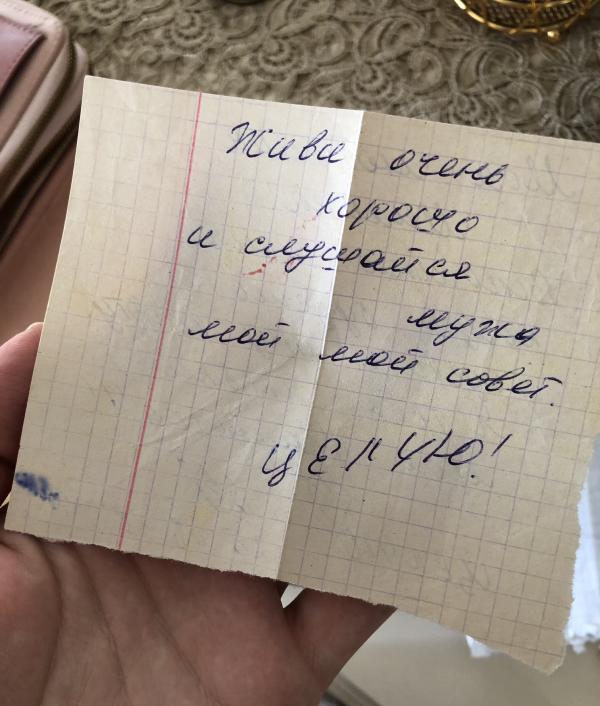 Живи очень
хорошо
и слушайся
мужа
мой мой совет.
ЦЕЛУЮ!